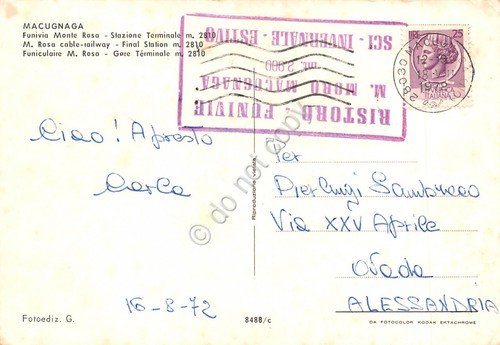 MACUGNAGA
Funivia Monte Rosa - Stazione Terminale m. 2810
M. Rosa cable-railway - Final Station m. 2810
Funiculaire M. Rosa - Gare Términale m. 2810
RISTORO FUNIVIE
M. MORO MACUGNAGA
mt. 2.000
SCI - INVERNALE - ESTIVO
LIRE 25
28030 MACUGNAGA
Ciao! A presto
Carla
16-8-72
Fotoediz. G.
Riproduzione vietata
8488/c
Per
Pierluigi
Via XXV Aprile
Ovada
ALESSANDRIA
DA FOTOCOLOR KODAK EKTACHROME
© do not copy